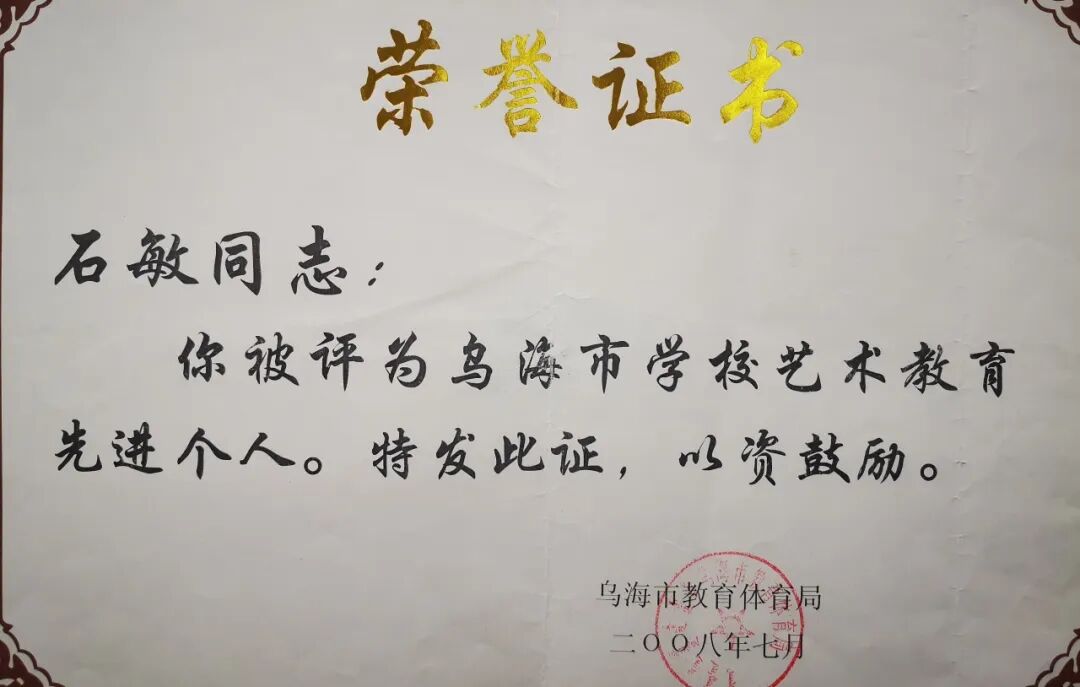 荣誉证书
石敏同志:
你被评为乌海市学校艺术教育
先进个人。特发此证,以资鼓励。
乌海市教育体育局
二〇〇八年七月